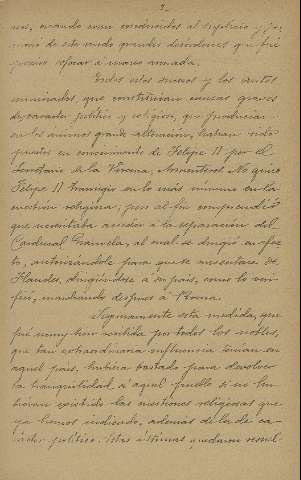 ros, cuando eran conducidos al suplicio y for-
mando de este modo grandes desórdenes que fué
preciso sofocar á mano armada.
Todos estos sucesos y los antes
enunciados, que constituian causas graves
de caracter político y religioso, que producian
en los ánimos grande alteracion, habian sido
puestos en conocimiento de Felipe II por el
Secretario de la Virreina, Armenteros. No quiso
Felipe II transigir en lo más mínimo en la
cuestion religiosa; pero al fin comprendió
que necesitaba acceder á la separación del
Cardenal Granvela, al cual se dirigió en efec-
to, autorizándole para que se ausentara de
Flandes, dirigiéndose á su pais, como lo veri-
ficó, marchando despues á Roma.
Seguramente esta medida, que
fué muy bien recibida por todos los nobles,
que tan extraordinaria influencia tenían en
aquel pais, hubiera bastado para devolver
la tranquilidad á aquel pueblo si no hu-
bieran existido las cuestiones religiosas que
ya hemos indicado, además de la de ca-
rácter político. Estas últimas quedaron resuel-